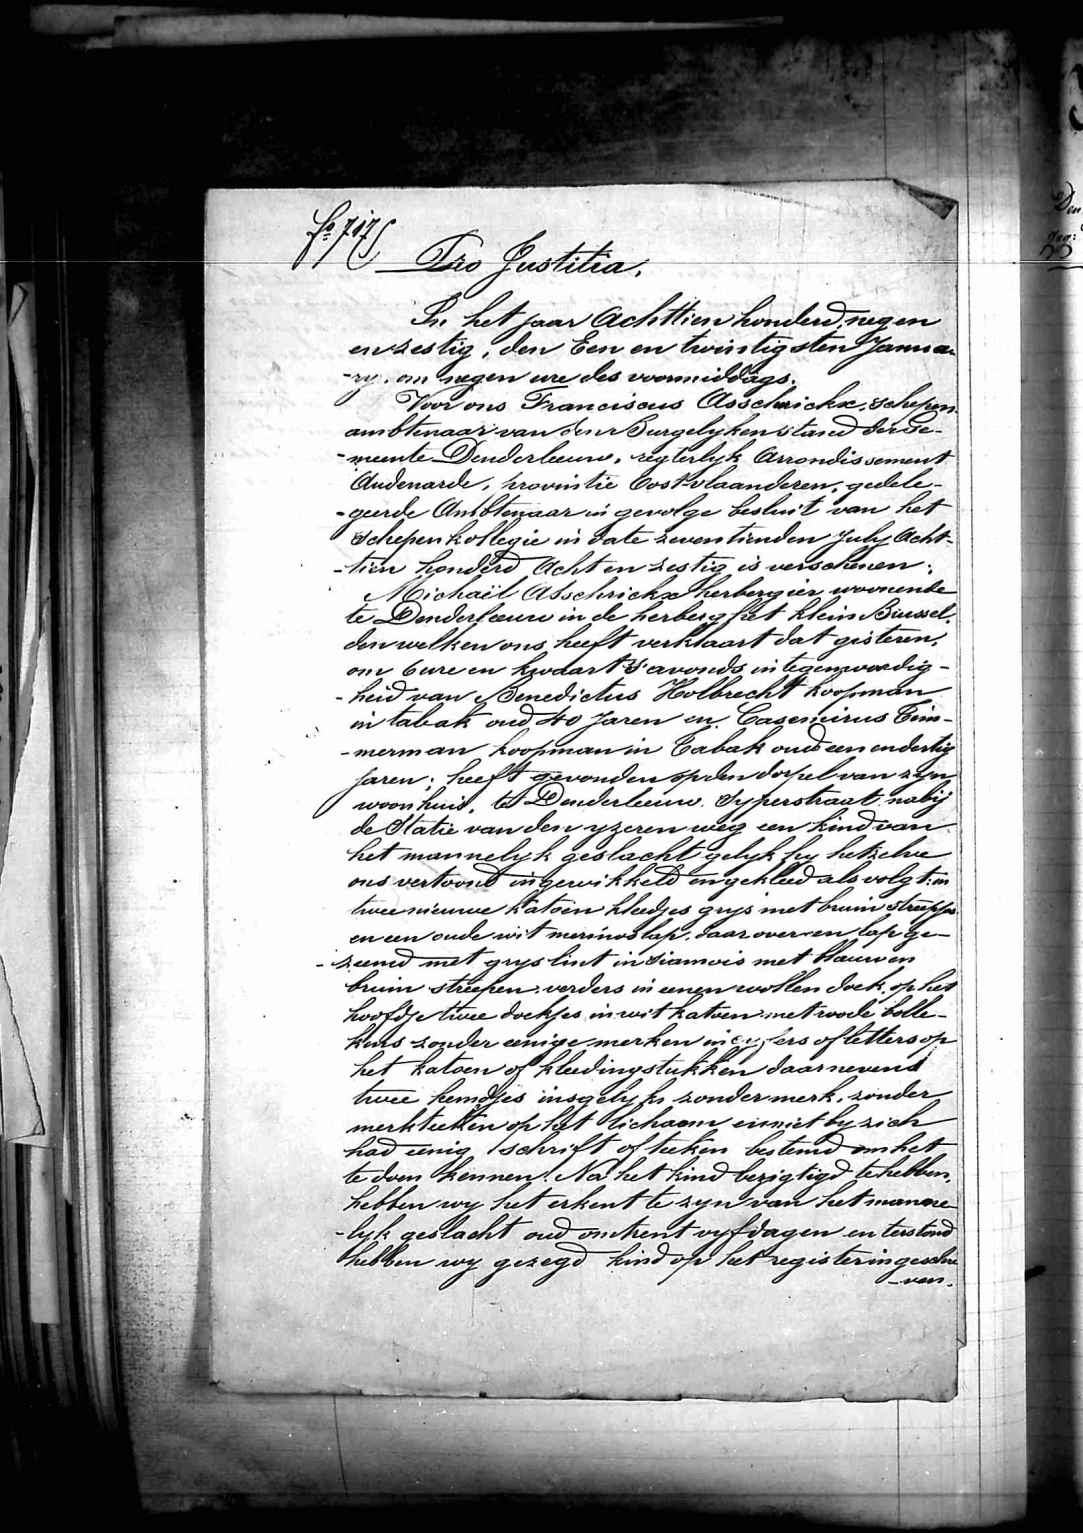 fo. 717
Pro Justitia.
In het jaar Achttien honderd, negen
en zestig, den Een en twintigsten Janua-
-ry, om negen ure des voormiddags.
Voor ons Franciscus Asscherickx, schepen
ambtenaar van den Burgelyken stand der Ge-
-meente Denderleeuw, regterlyk Arrondissement
Audenarde, provintie Oostvlaanderen, gedele-
-geerde Ambtenaar in gevolge besluit van het
schepenkollegie in date zeventienden July Acht-
-tien honderd Acht en zestig is verschenen:
Michaël Asscherickx herbergier woonende
te Denderleeuw in de herberg het klein Brussel,
den welken ons heeft verklaart dat gisteren,
om 6 ure en kwaart 's avonds in tegenwoordig-
-heid van Benedictus Holbrecht koopman
in tabak oud 40 Jaren en Casemirus Tim-
-merman koopman in Tabak oud een en dertig
Jaren; heeft gevonden op den dorpel van zyn
woonhuis, te Denderleeuw, Syperstraat, nabij
de Statie van den yzeren weg een kind van
het mannelyk geslacht gelyk hy hetzelve
ons vertoond ingewikkeld en gekleed als volgt: in
twee nieuwe katoen kleedjes grys met bruin streepjes
en een oude wit merinos lap, daar over een lap ge-
-zeemd met grys lint in siamois met blauw en
bruin streepen, verders in eenen wollen doek, op het
hoofdje twee doekjes in wit katoen met roode bolle-
kens zonder eenige merken in cyfers of letters op
het katoen of kleedingstukken daarnevens
twee hemdjes insgelyks zonder merk, zonder
merkteeken op het lichaam en niet by zich
had eenig schrift of teeken bestemd om het
te doen kennen. Na het kind bezigtigd te hebben,
hebben wy het erkent te zyn van het manne
-lyk geslacht oud omtrent vyf dagen en terstond
hebben wy gezegd kind op het register ingeschre
-ven.